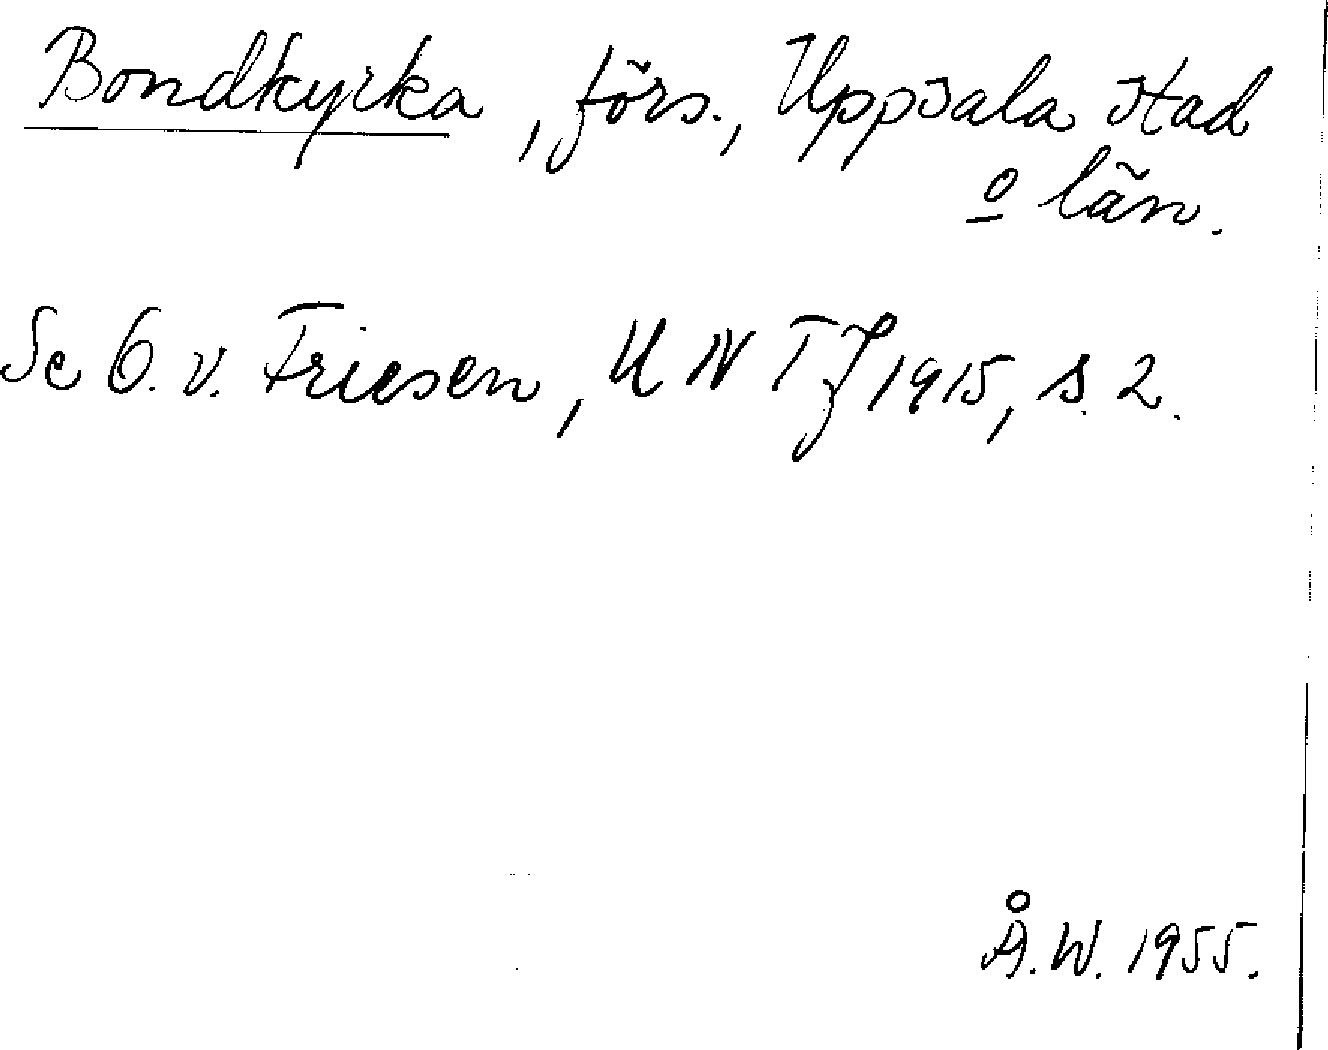 Bondkyrka, förs., Uppsala stad
o län.
Se O. v. Friesen, UNTJ 1915, s. 2.
Å.W. 1955.